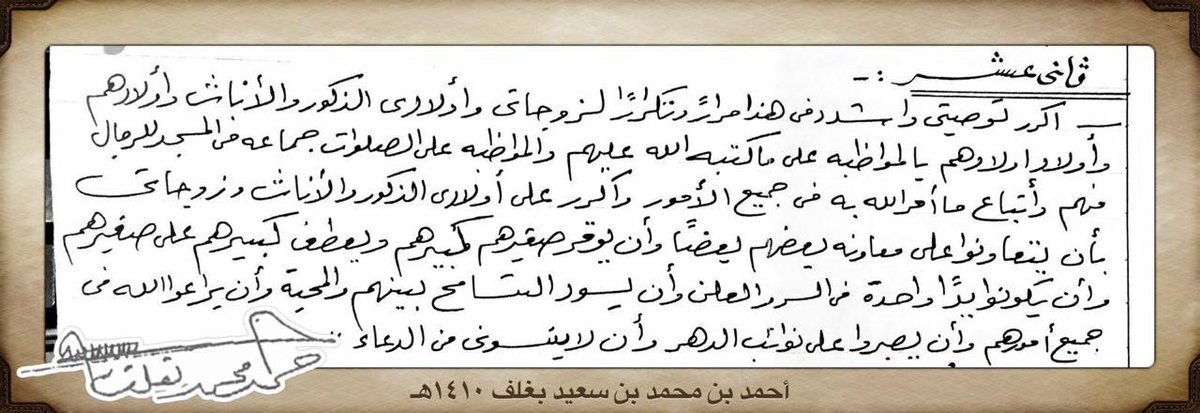 ثاني عشر :-
ـ اكرر توصيتي واشدد في هذا مراراً وتكراراً لزوجاتي وأولادي الذكور والأناث وأولادهم
وأولاد اولادهم بالمواظبه على ما كتبه الله عليهم والمواظبه على الصلوات جماعه في المسجد للرجال
منهم وأتباع ما أمر الله به في جميع الأمور وأكرر على أولادي الذكور والأناث وزوجاتي
بأن يتعاونوا على معاونه بعضهم بعضاً وأن يوقر صغيرهم كبيرهم ويعطف كبيرهم على صغيرهم
وأن يكونوا يداً واحدة في السر والعلن وأن يسود التسامح بينهم والمحبة وأن يراعوا الله في
جميع أمورهم وأن يصبروا على نوائب الدهر وأن لا ينسوني من الدعاء
أحمد بن محمد بن سعيد بغلف ١٤١٠هـ